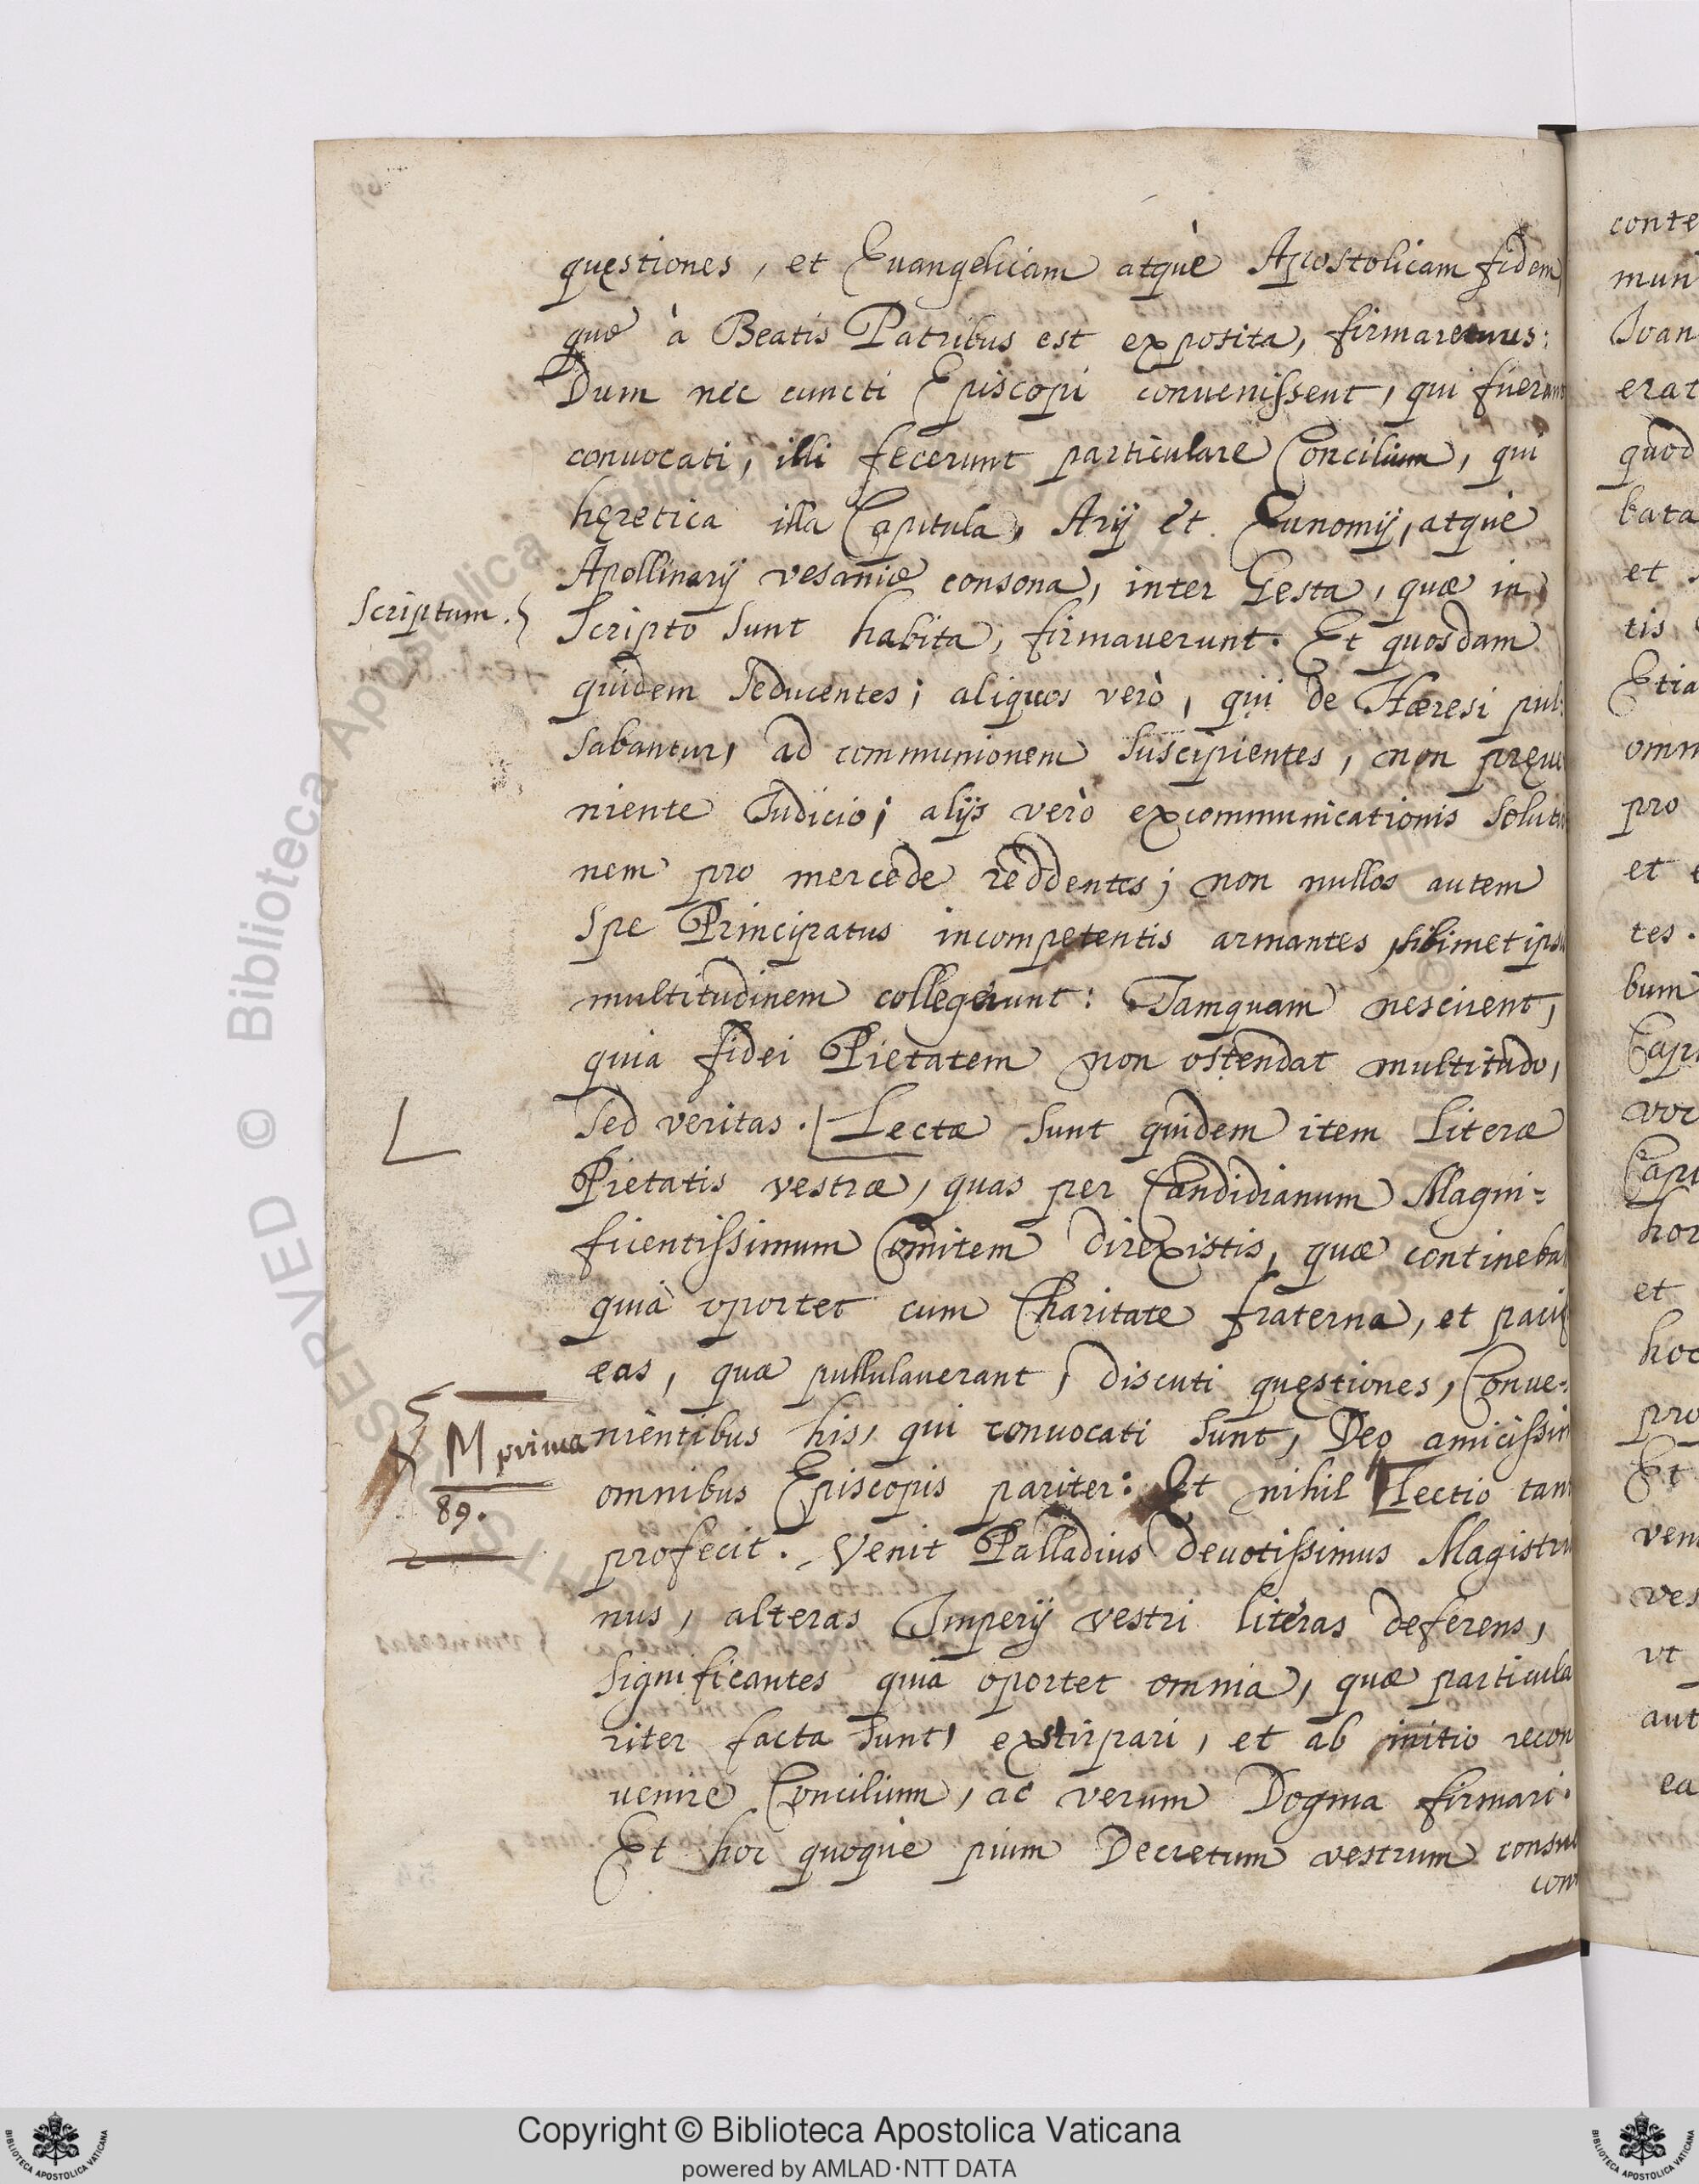 quęstiones, et Euangelicam atquè Apostolicam fidem
que à Beatis Patribus est exposita, firmaremus:
Dum nec cuncti Episcopi conuenissent, qui fuerant
conuocati, illi fecerunt particulare Concilium, qui
hęretica illa Capitula, Arij et Eunomij, atquè
Apollinarij vesanie consona, inter Gesta, quæ in
Scriptum.
Scripto sunt habita, firmauerunt. Et quosdam
quidem seducentes; aliquos verò, qui de Hæresi pul-
sabantur, ad communionem suscipientes, non pręue
niente Iudicio; alijs verò excommunicationis solutio
nem pro mercede reddentes; non nullos autem
spe Principatus incompetentis armantes, sibimetipsi
multitudinem collegerunt: Tamquam nescirent,
quia fidei Pietatem non ostendat multitudo,
L
sed veritas. Lectæ sunt quidem item literæ
Pietatis vestræ, quas per Candidianum Magni=
ficentissimum Comitem direxistis, quæ contineba
quià oportet cum Charitate fraterna, et pacif
eas, quæ pullulauerant, discuti quęstiones, Conue=
M prima
89.
nientibus his, qui conuocati sunt, Deo amicissim
omnibus Episcopis pariter: Et nihil Lectio tant
profecit. Venit Palladius deuotissimus Magistria
nus, alteras Imperij vestri literas deferens,
significantes quià oportet omnia, quæ particula
riter facta sunt, exstirpari, et ab initio recon
uenire Concilium, ac verum Dogma firmari.
Et hoc quoquè pium Decretum vestrum consul
con
conte
mun
Ioan
erat
quod
bata
et
tis
Etia
omn
pro
et
tes.
bum
Capi
voc
Capi
hor
et
hoc
pro
Et
ven
ves
vt
aut
ea
© Biblioteca Apostolica Vaticana
Copyright © Biblioteca Apostolica Vaticana
powered by AMLAD·NTT DATA
BIBLIOTECA APOSTOLICA VATICANA
BIBLIOTECA APOSTOLICA VATICANA